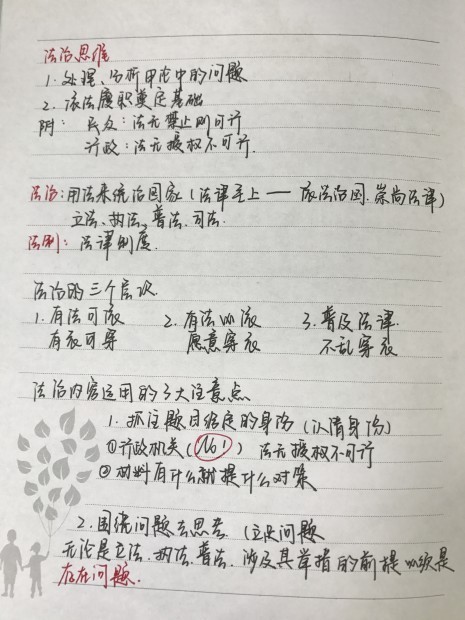 法治思维
1. 处理、分析申论中的问题
2. 依法履职奠定基础
附: 民众:法无禁止则可行
行政:法无授权不可行.
法治:用法来统治国家(法律至上——依法治国.崇尚法律)
立法、执法、普法.司法.
法制:法律制度.
法治的三个层次.
1. 有法可依 2. 有法必依 3. 普及法律.
有衣可穿 愿意穿衣 不乱穿衣
法治内容运用的3大注意点
1. 抓住题目给定的身份(认清身份)
①行政机关(No1) 法无授权不可行
②材料有什么就提什么对策
2. 围绕问题去思考.(立足问题
无论是立法.执法.普法.涉及其举措的前提必须是
存在问题.